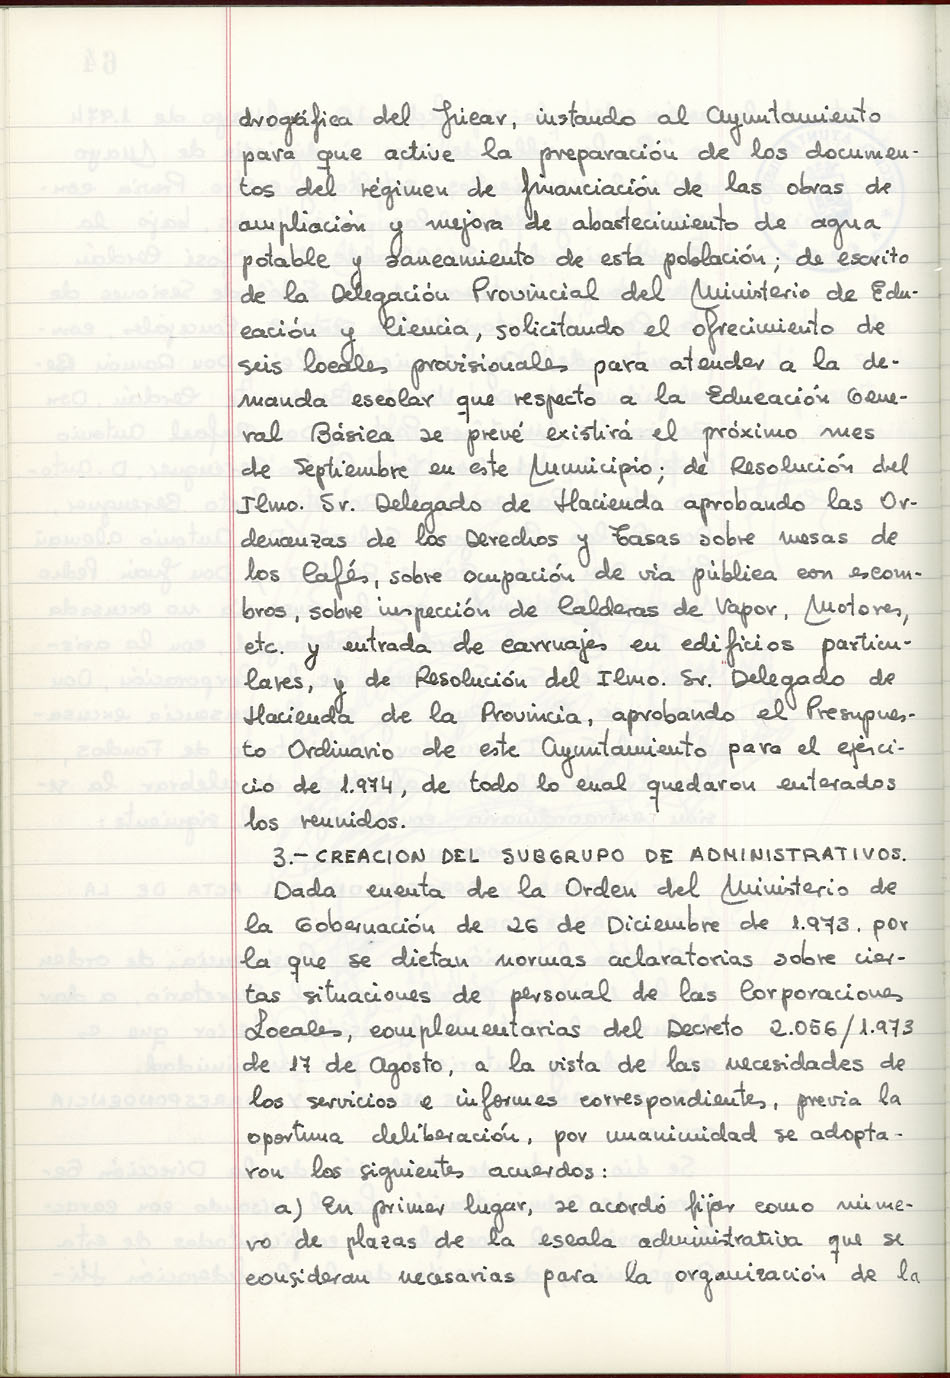 drográfica del Júcar, instando al Ayuntamiento
para que active la preparación de los documen-
tos del régimen de financiación de las obras de
ampliación y mejora de abastecimiento de agua
potable y saneamiento de esta población; de escrito
de la Delegación Provincial del Ministerio de Edu-
cación y Ciencia, solicitando el ofrecimiento de
seis locales provisionales para atender a la de-
manda escolar que respecto a la Educación Gene-
ral Básica se prevé existirá el próximo mes
de Septiembre en este Municipio; de Resolución del
Ilmo. Sr. Delegado de Hacienda aprobando las Or-
denanzas de los Derechos y Tasas sobre mesas de
los Cafés, sobre ocupación de via pública con escom-
bros, sobre inspección de Calderas de Vapor, Motores,
etc. y entrada de carruajes en edificios particu-
lares, y de Resolución del Ilmo. Sr. Delegado de
Hacienda de la Provincia, aprobando el Presupues-
to Ordinario de este Ayuntamiento para el ejerci-
cio de 1.974, de todo lo cual quedaron enterados
los reunidos.
3.- CREACION DEL SUBGRUPO DE ADMINISTRATIVOS.
Dada cuenta de la Orden del Ministerio de
la Gobernación de 26 de Diciembre de 1.973. por
la que se dictan normas aclaratorias sobre cier-
tas situaciones de personal de las Corporaciones
Locales, complementarias del Decreto 2.056/1.973
de 17 de Agosto, a la vista de las necesidades de
los servicios e informes correspondientes, previa la
oportuna deliberación, por unanimidad se adopta-
ron los siguientes acuerdos:
a) En primer lugar, se acordó fijar como núme-
ro de plazas de la escala administrativa que se
consideran necesarias para la organización de la